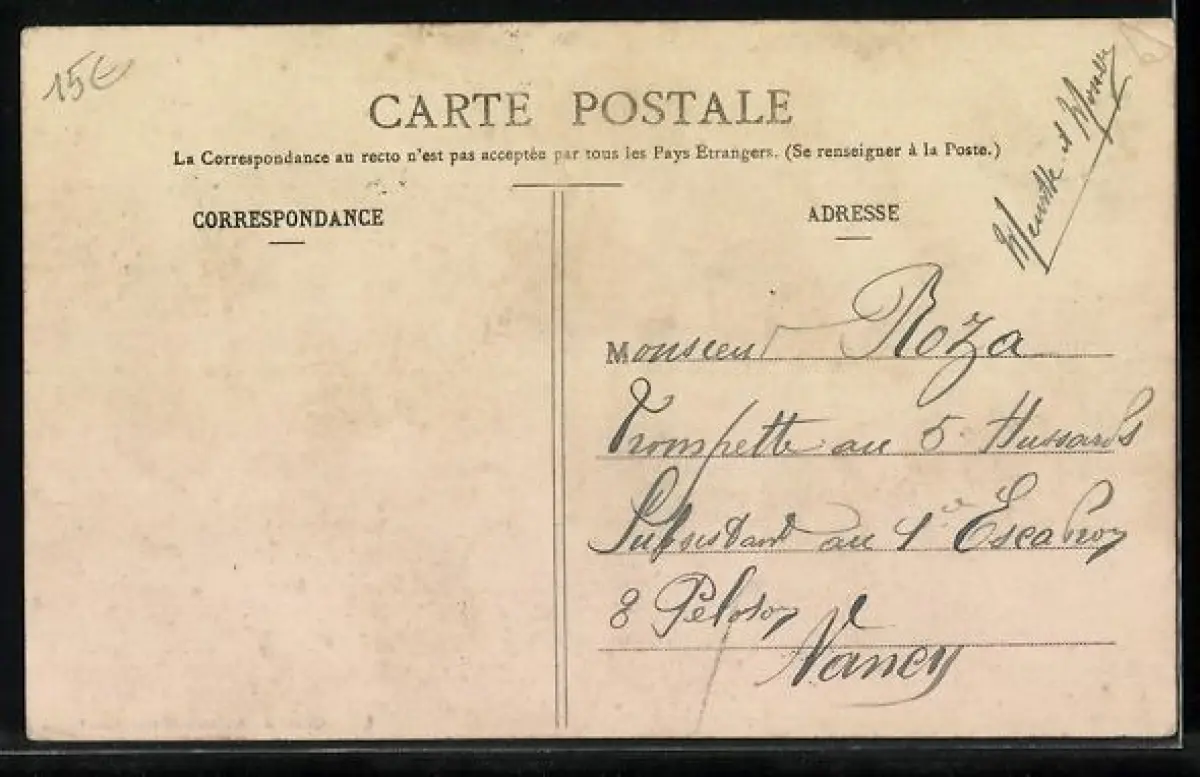 15€
CARTE POSTALE
La Correspondance au recto n'est pas acceptée par tous les Pays Etrangers. (Se renseigner à la Poste.)
CORRESPONDANCE
ADRESSE
Meurthe et
Monsieur Roza
Trompette au 5e Hussards
Subsistant au 1er Escadron
Nancy